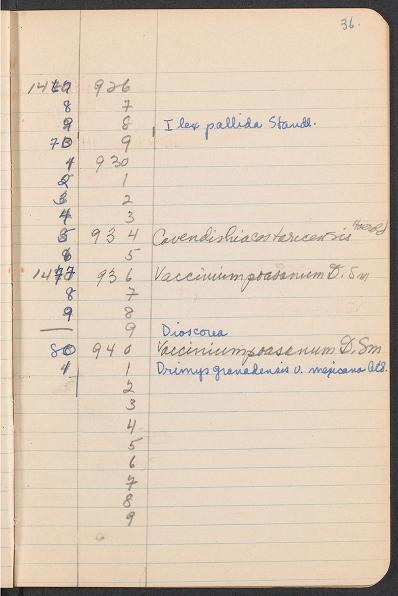 36.
926
8 7
9 8 Ilex pallida Standl.
70 9
1 930
2 1
3 2
4 3
5 934 Cavendishia costaricensis
6 5
1477 936 Vaccinium poasanum D. Sm
8 7
9 8
— 9 Dioscorea
80 940 Vaccinium poasanum D. Sm
1 1 Drimys granadensis v. mejicana
2
3
4
5
6
7
8
9